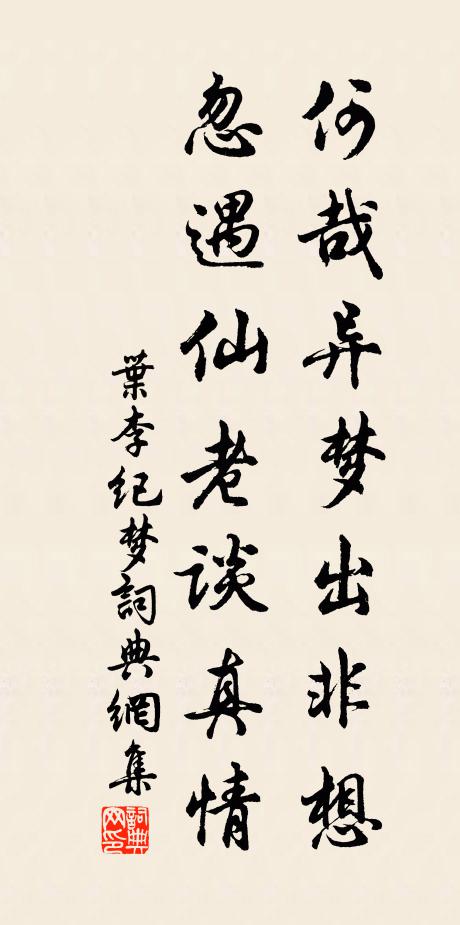 何哉异梦出非想
忽遇仙老谈真情
葉李纪梦詞典網集
詞典
网印